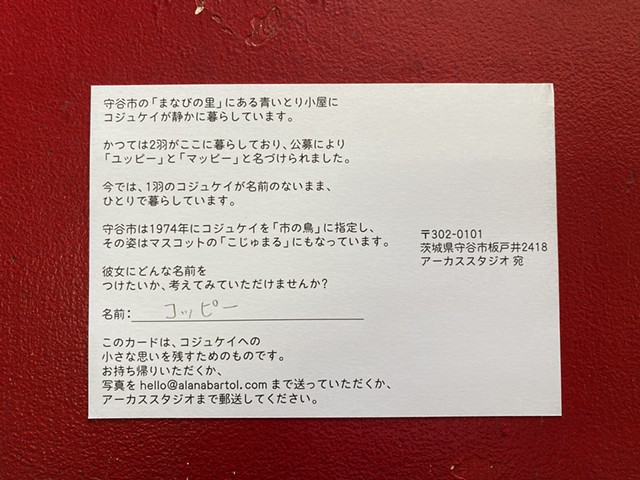 守谷市の「まなびの里」にある青いとり小屋に
コジュケイが静かに暮らしています。
かつては2羽がここに暮らしており、公募により
「ユッピー」と「マッピー」と名づけられました。
今では、1羽のコジュケイが名前のないまま、
ひとりで暮らしています。
守谷市は1974年にコジュケイを「市の鳥」に指定し、
その姿はマスコットの「こじゅまる」にもなっています。
彼女にどんな名前を
つけたいか、考えてみていただけませんか？
名前： コッピー
このカードは、コジュケイへの
小さな思いを残すためのものです。
お持ち帰りいただくか、
写真を hello@alanabartol.com まで送っていただくか、
アーカススタジオまで郵送してください。
〒302-0101
茨城県守谷市板戸井2418
アーカススタジオ 宛